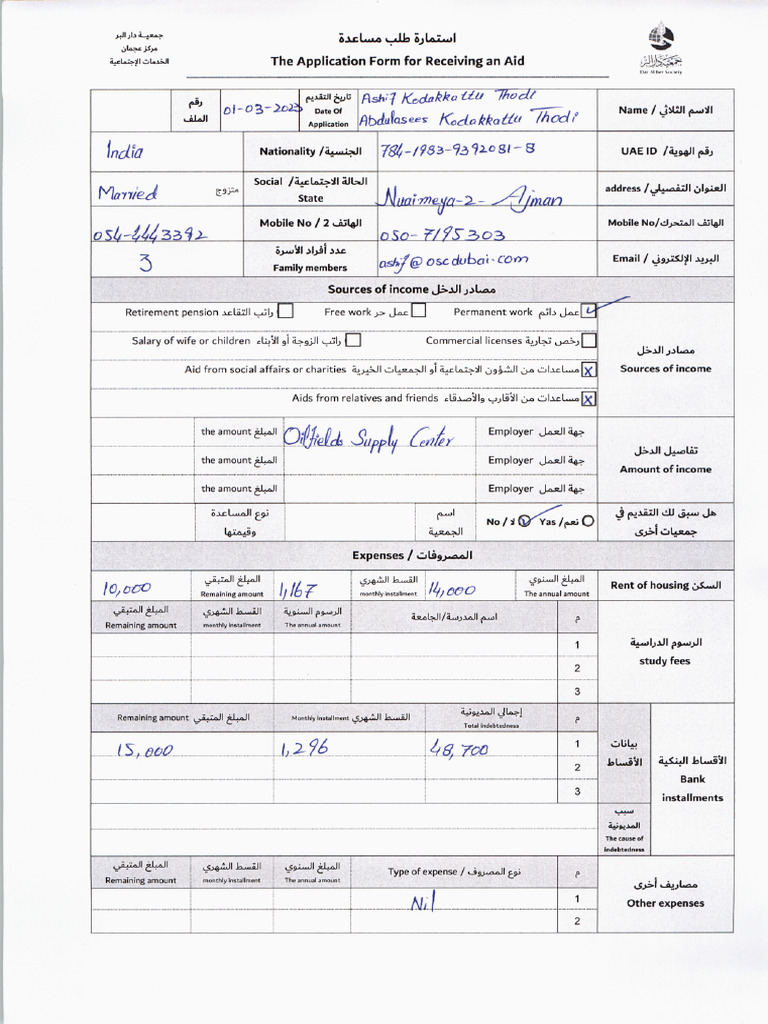 جمعيـة دار البر
مركز عجمان
الخدمات الإجتماعية
استمارة طلب مساعدة
The Application Form for Receiving an Aid
جمعية دار البر
Dar Al Ber Society
الاسم الثلاثي / Name
Ashif Kodakkattu Thodi
Abdulasees Kodakkattu Thodi
تاريخ التقديم
Date Of
Application
01-03-2023
رقم
الملف
رقم الهوية/ UAE ID
784-1983-9392081-8
الجنسية/ Nationality
India
العنوان التفصيلي/ address
Nuaimeya-2- Ajman
الحالة الاجتماعية/ Social
State
Married متزوج
الهاتف المتحرك/Mobile No
050-7195303
الهاتف 2 / Mobile No
054-4443392
البريد الإلكتروني / Email
ashif@oscdubai.com
عدد أفراد الأسرة
Family members
3
مصادر الدخل Sources of income
مصادر الدخل
Sources of income
عمل دائم Permanent work
عمل حر Free work
راتب التقاعد Retirement pension
رخص تجارية Commercial licenses
راتب الزوجة أو الأبناء Salary of wife or children
مساعدات من الشؤون الاجتماعية أو الجمعيات الخيرية Aid from social affairs or charities X
مساعدات من الأقارب والأصدقاء Aids from relatives and friends X
تفاصيل الدخل
Amount of income
جهة العمل Employer Oilfields Supply Center المبلغ the amount
جهة العمل Employer المبلغ the amount
جهة العمل Employer المبلغ the amount
هل سبق لك التقديم في
جمعيات أخرى
نعم/ Yas لا / No
اسم
الجمعية
نوع المساعدة
وقيمتها
المصروفات / Expenses
السكن Rent of housing
المبلغ السنوي
The annual amount
14,000
القسط الشهري
monthly installment
1,167
المبلغ المتبقي
Remaining amount
10,000
الرسوم الدراسية
study fees
م
اسم المدرسة/الجامعة
الرسوم السنوية
The annual amount
القسط الشهري
monthly installment
المبلغ المتبقي
Remaining amount
1
2
3
الأقساط البنكية
Bank
installments
بيانات
الأقساط
م
إجمالي المديونية
Total indebtedness
القسط الشهري Monthly installment
المبلغ المتبقي Remaining amount
1 48,700 1,296 15,000
2
3
سبب
المديونية
The cause of
indebtedness
مصاريف أخرى
Other expenses
م
نوع المصروف / Type of expense
المبلغ السنوي
The annual amount
القسط الشهري
monthly installment
المبلغ المتبقي
Remaining amount
1 Nil
2